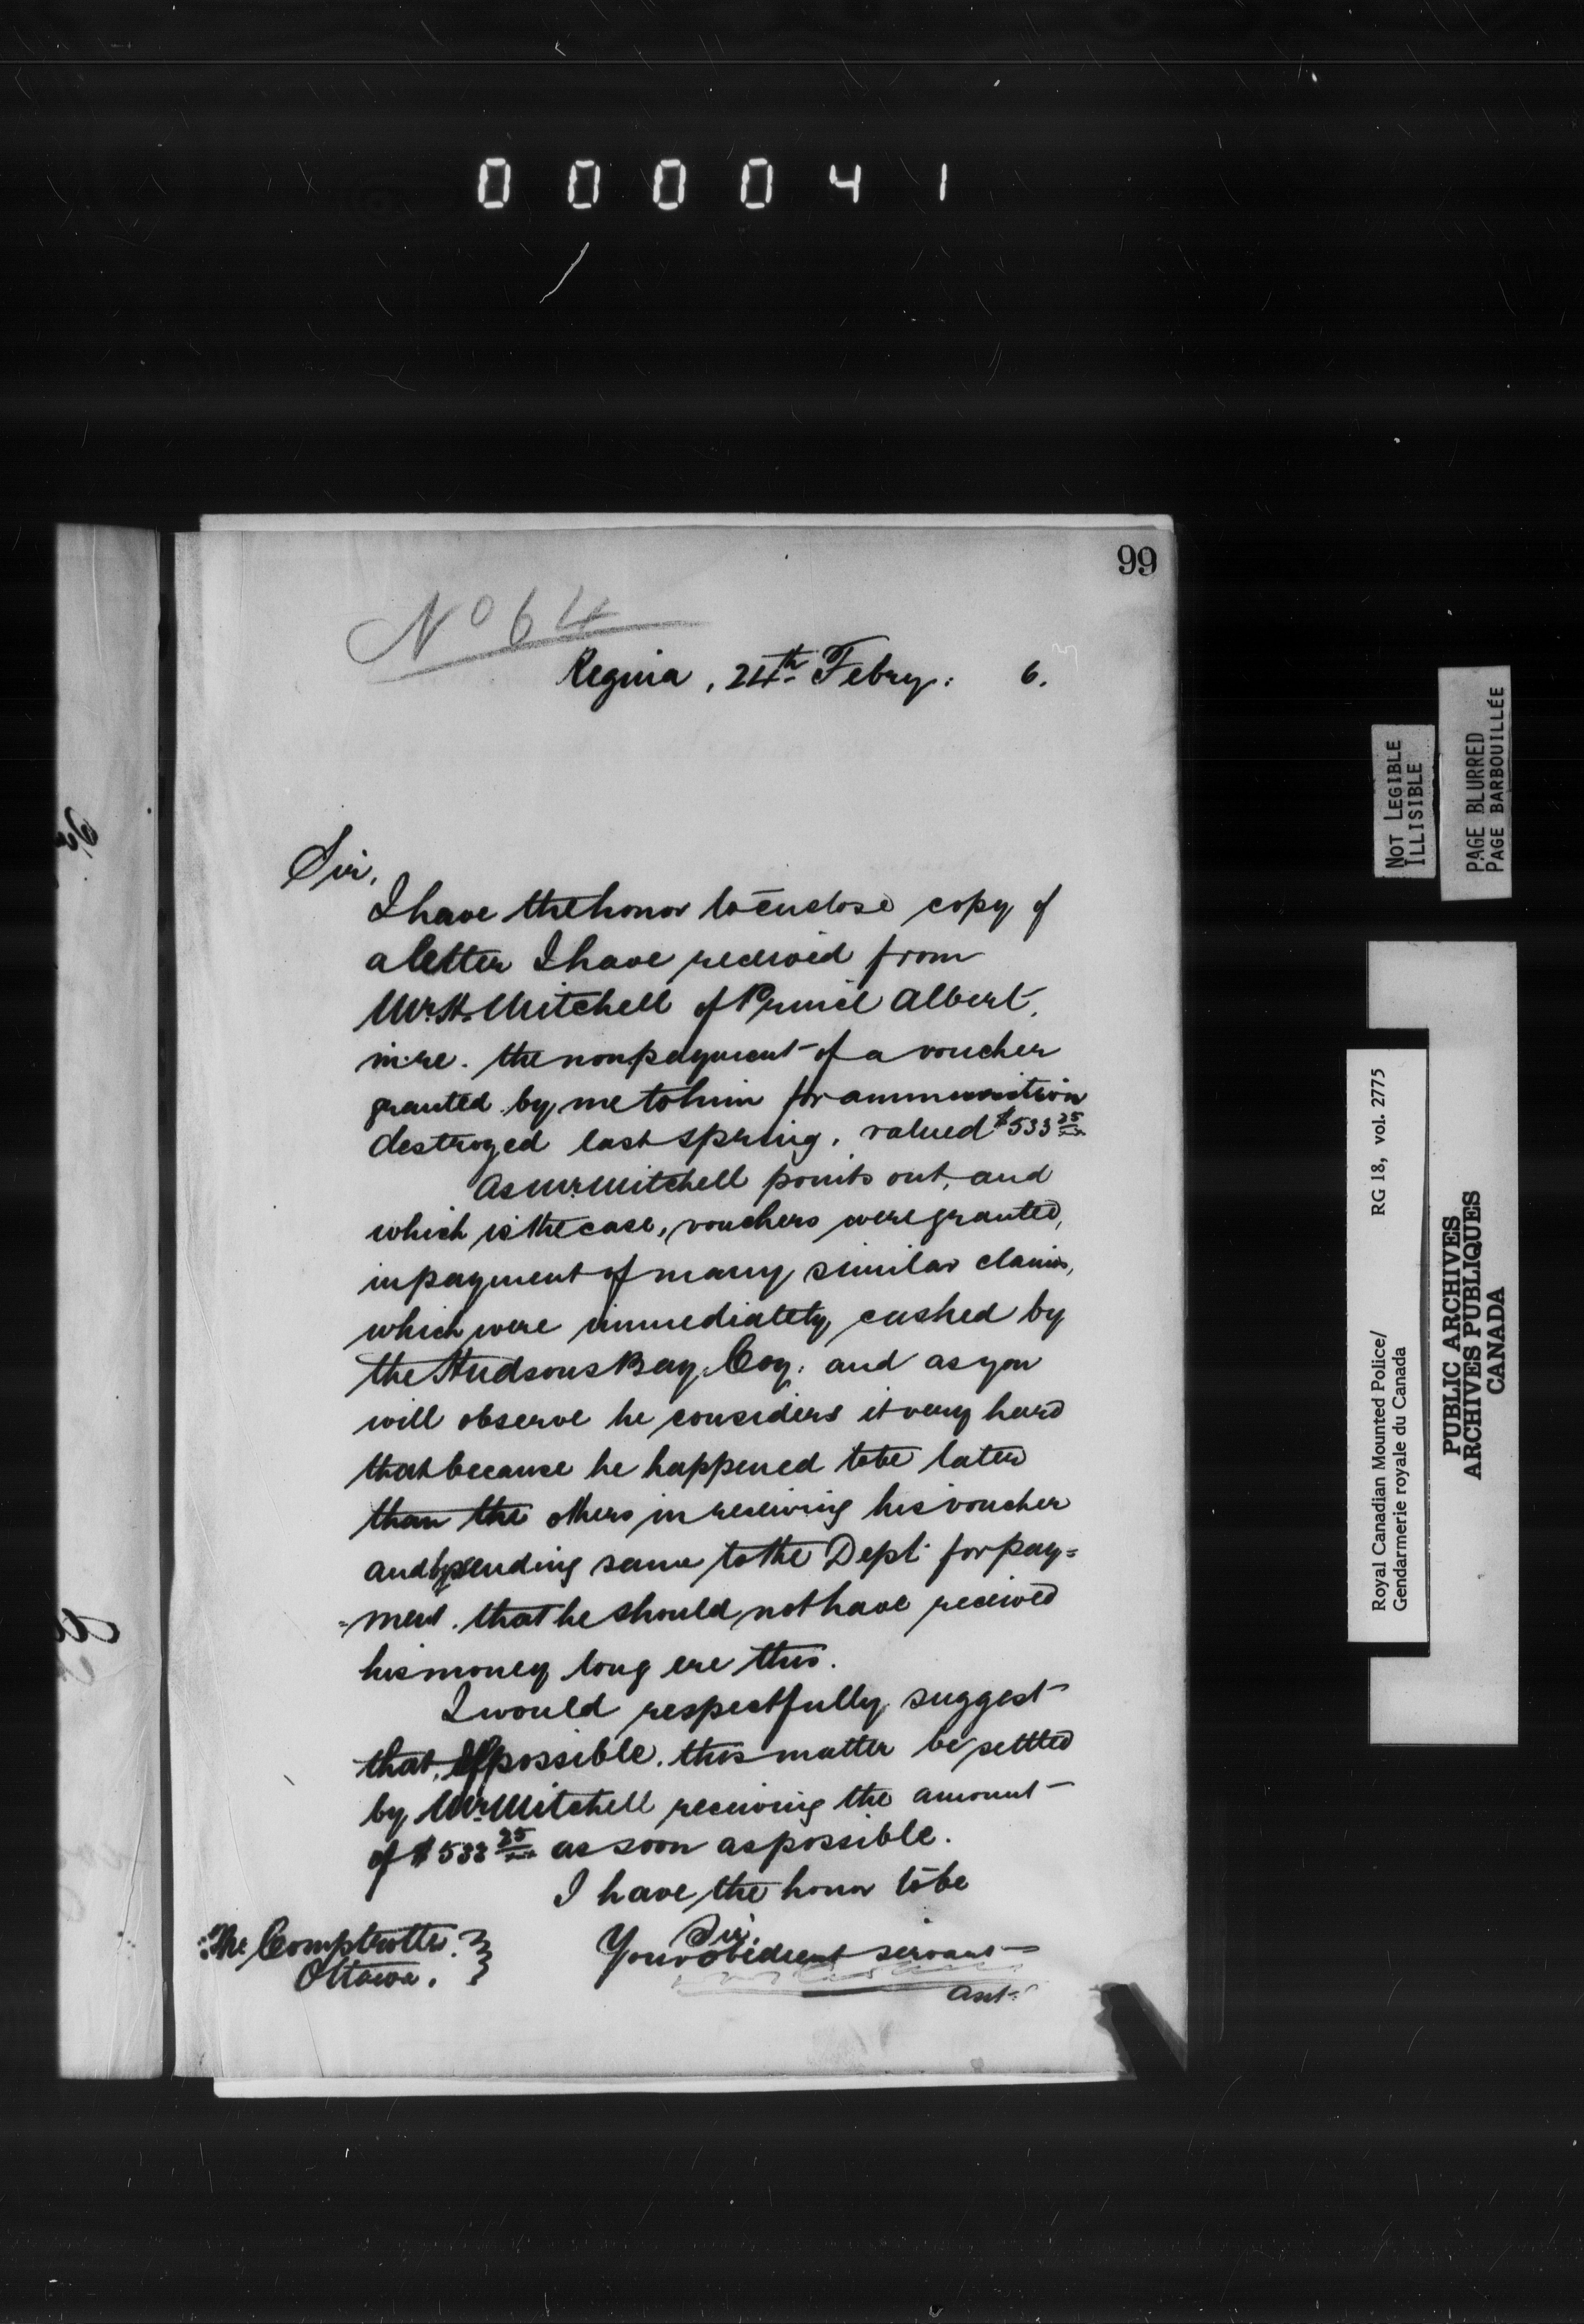 000041
99
No 64
Regina, 24th Febry: 6.
Sir,
I have the honor to enclose copy of
a letter I have received from
Mr. H. Mitchell of Prince Albert,
in re. the nonpayment of a voucher
granted by me to him for ammunition
destroyed last spring, valued $533 25/xx
As Mr. Mitchell points out, and
which is the case, vouchers were granted,
in payment of many similar claims,
which were immediately cashed by
the Hudsons Bay Coy: and as you
will observe he considers it very hard
that because he happened to be later
than the others in receiving his voucher
and by sending same to the Dept. for pay=
=ment. that he should not have received
his money long ere this.
I would respectfully suggest
that, if possible. this matter be settled
by Mr. Mitchell receiving the amount
of $533 25/xx as soon as possible.
I have the honor to be
Sir,
Your obedient servant
Asst.
The Comptroller.
Ottawa.
NOT LEGIBLE
ILLISIBLE
PAGE BLURRED
PAGE BARBOUILLÉE
Royal Canadian Mounted Police/ RG 18, vol. 2775
Gendarmerie royale du Canada
PUBLIC ARCHIVES
ARCHIVES PUBLIQUES
CANADA